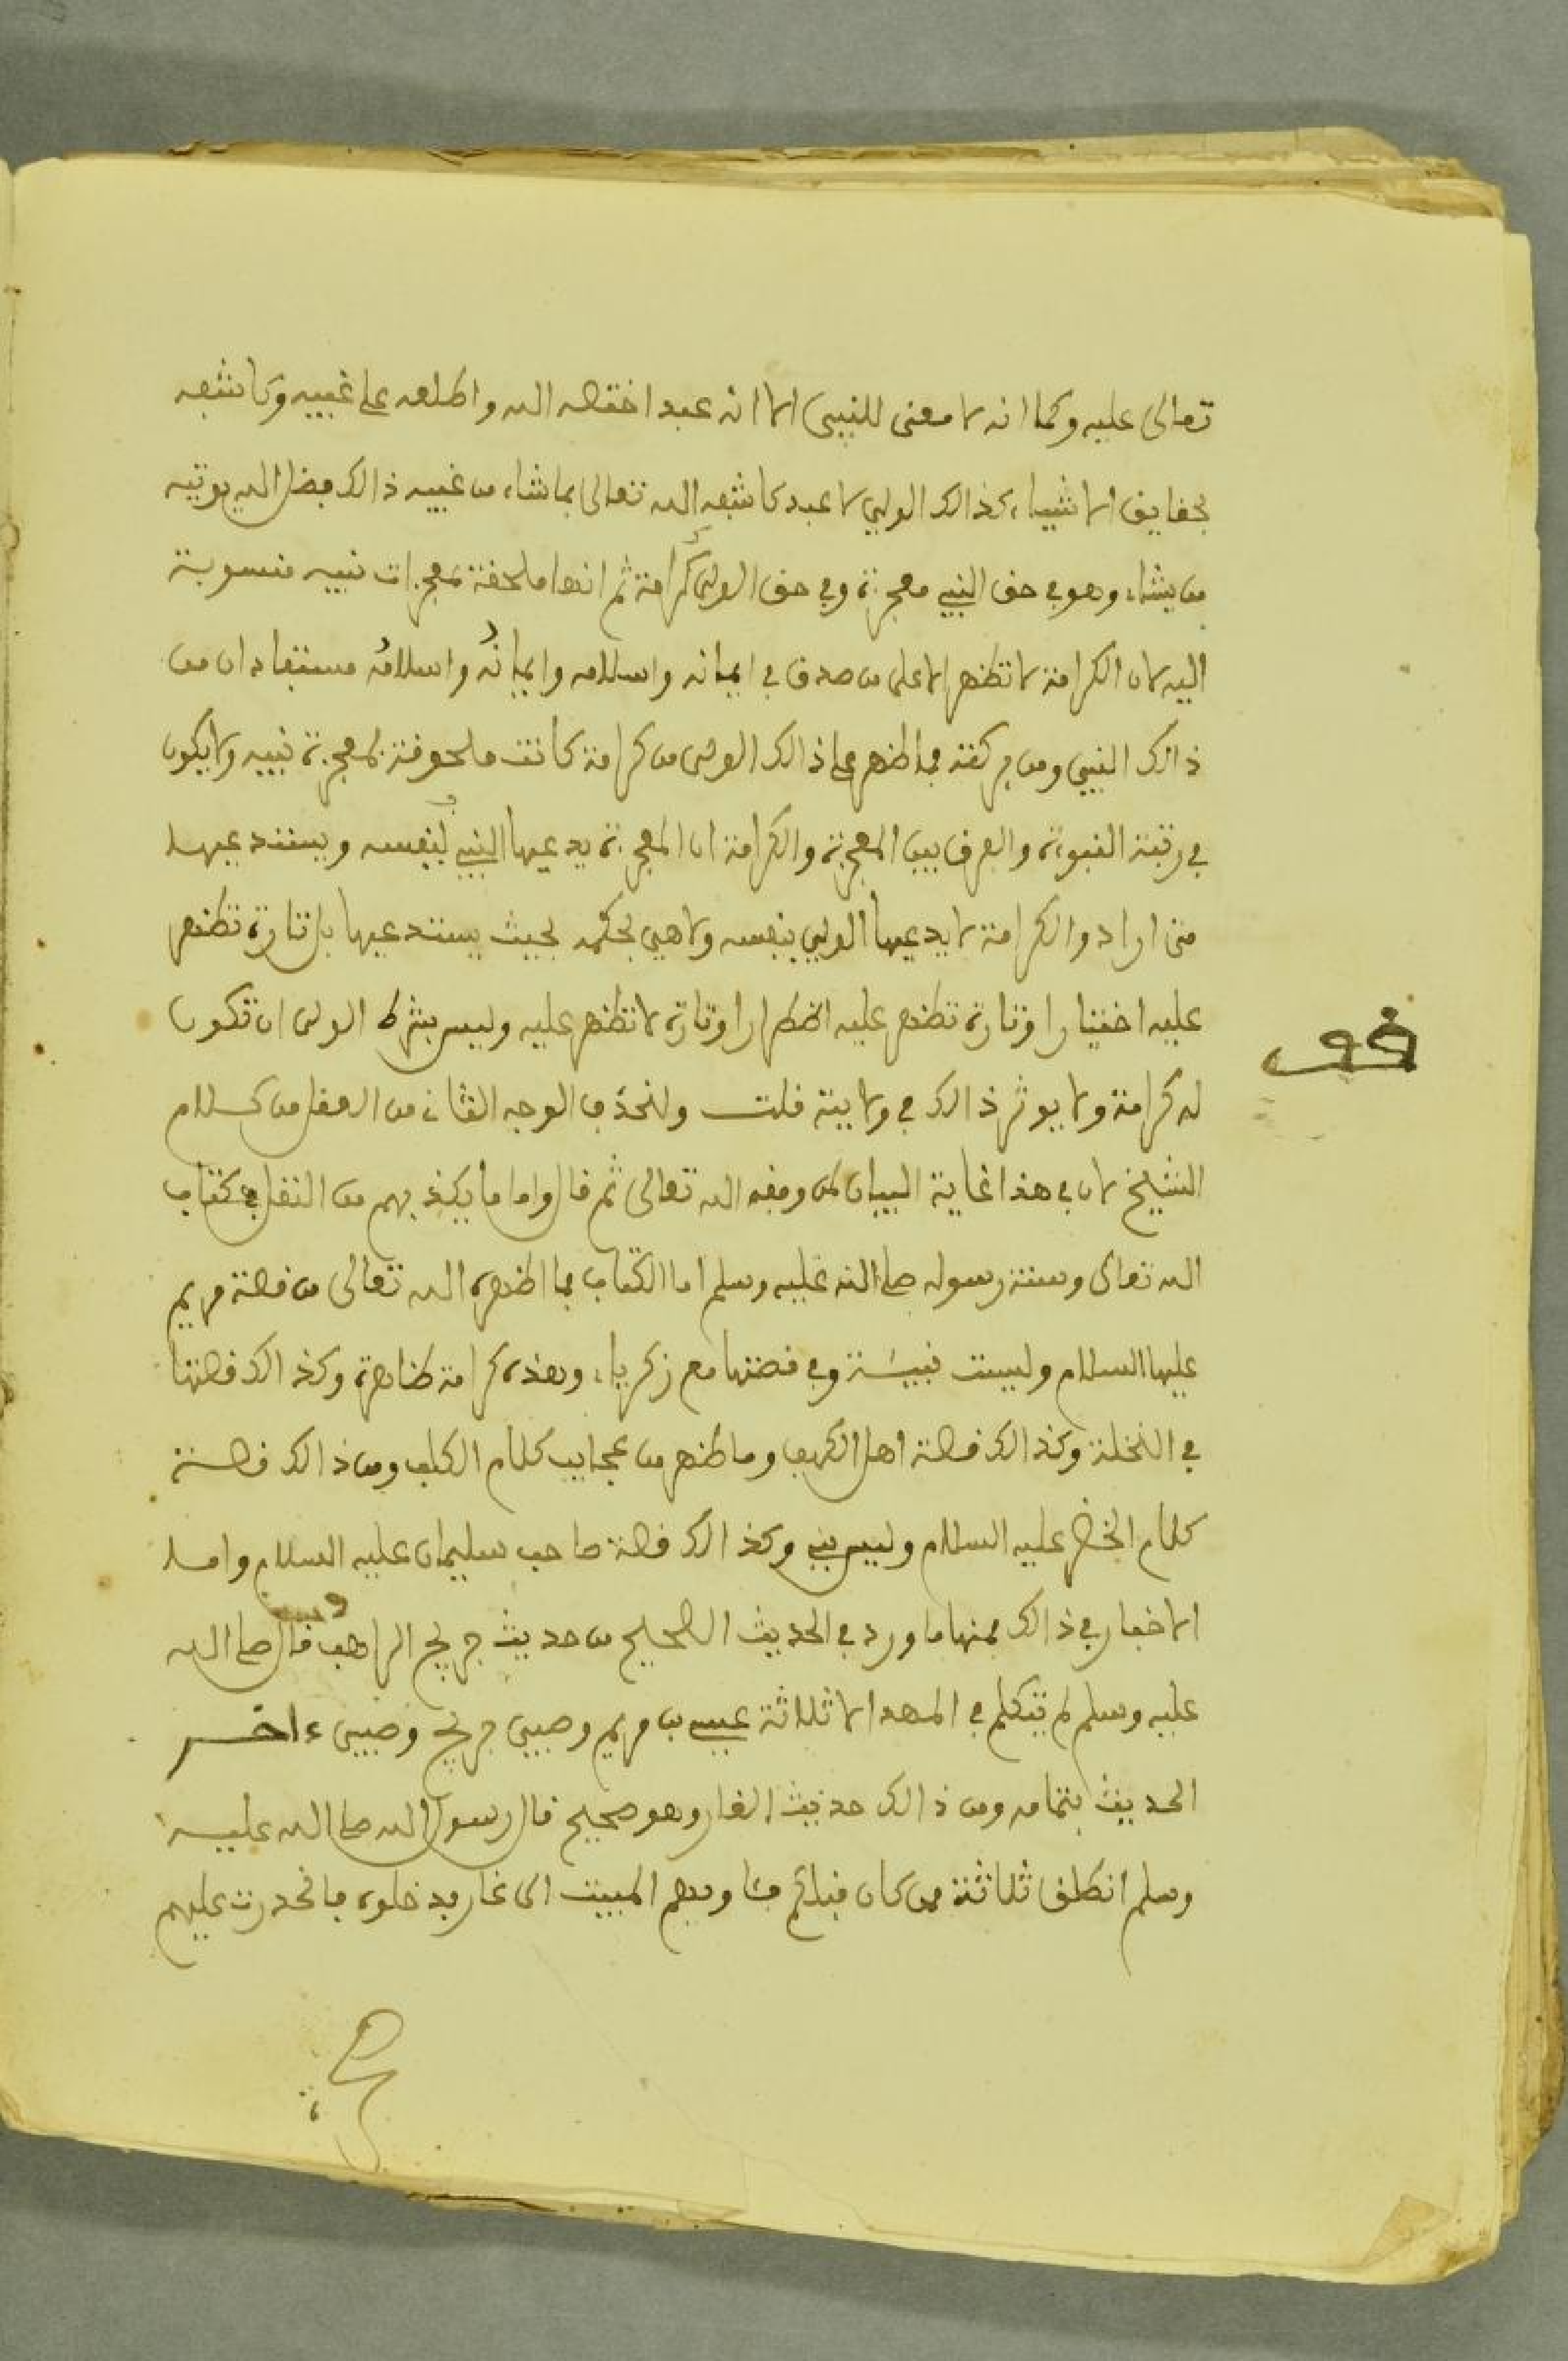 تعالى عليه وكما انه لا معنى للنبيى الا انه عبد اختصه الله واطلعه على غيبه وكاشفه
بحقايق الاشياء كذالك الولي لا عبد كاشفه الله تعالى بما شاء من غيبه ذالك فضل الله يوتيه
من يشاء وهو في حق النبي معجزة وفي حق الولى كرامة ثم انها ملحقة بمعجزات نبيه منسوبة
اليه لان الكرامة لا تظهر الا على من صدق في ايمانه واسلامه وايمانه واسلامه مستفادان من
ذالك النبيى ومن بركته فما ظهر على ذالك الولى من كرامة كانت ملحوفة بمعجزة نبيه ولا يكون
في رتبة النبوءة والفرق بين المعجزة والكرامة ان المعجزة يدعيها النبي لنفسه ويستدعيها
متى اراد والكرامة لا يدعيها الولي بنفسه ولا هي بحكمه بحيث يستدعيها بل تارة تظهر
عليه اختيارا وتارة تظهر عليه اضطرارا وتارة لا تظهر عليه وليس بشرط الولى ان تكون
له كرامة ولا يوثر ذالك في ولايته قلت ولنحذف الوجه الثانى من العقل من كلام
الشيخ لان في هذا غاية البيان لمن وفقه الله تعالى ثم قال واما ما يكذبهم من النقل في كتاب
الله تعالى وسنة رسوله صلى الله عليه وسلم اما الكتاب فما اظهره الله تعالى من قصة مريم
عليها السلام وليست نبيئة وفي قصتها مع زكرياء وهذه كرامة ظاهرة وكذالك قصتها
في النخلة وكذالك قصة اهل الكهف وما ظهر من عجايب كلام الكلب ومن ذالك قصة
كلام الخضر عليه السلام وليس بنبي وكذالك قصة صاحب سليمان عليه السلام واما
الاخبار في ذالك فمنها ما ورد في الحديث الصحيح من حديث جريج الراهب قال صلى الله
عليه وسلم لم يتكلم في المهد الا ثلاثة عيسى بن مريم وصبيى جريج وصبيى ءاخر
الحديث بتمامه ومن ذالك حديث الغار وهو صحيح قال رسول الله صلى الله عليه
وسلم انطلق ثلاثة ممن كان قبلكم فئاويهم المبيت الى غار فدخلوه فانحدرت عليهم